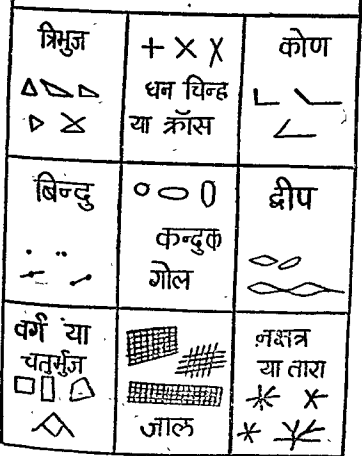 त्रिभुज
धन चिन्ह
या क्रॉस
कोण
बिन्दु
कन्दुक
गोल
द्वीप
वर्ग या
चतुर्भुज
जाल
नक्षत्र
या तारा